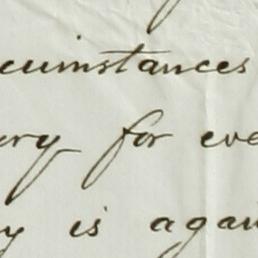 cumstances
ory for eve
y is again